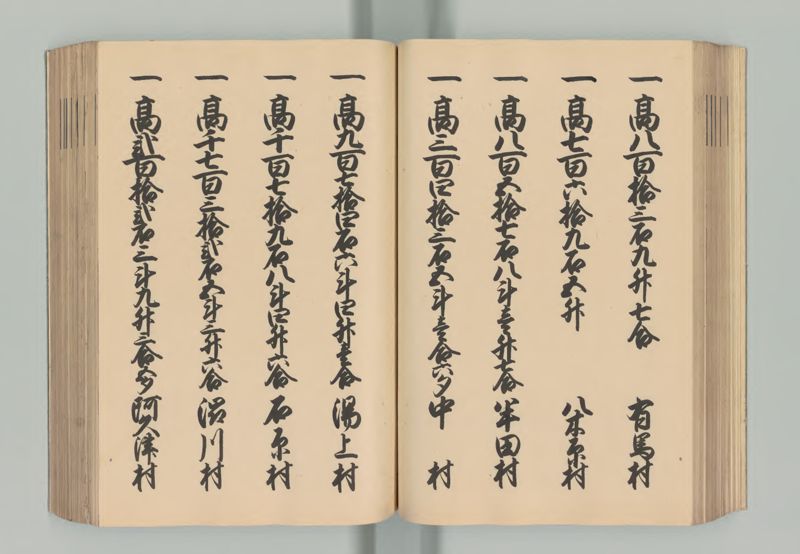 一高八百拾三石九升七合 有馬村
一高七百六拾九石五升 八木原村
一高八百五拾七石八斗壱升七合 半田村
一高三百四拾三石五斗壱合六夕 中村
一高九百七拾四石六斗四升壱合 湯上村
一高千百七拾九石八斗四升六合 石原村
一高千七百三拾弐石五斗三升六合 渋川村
一高弐百拾弐石三斗九升三合 阿久津村